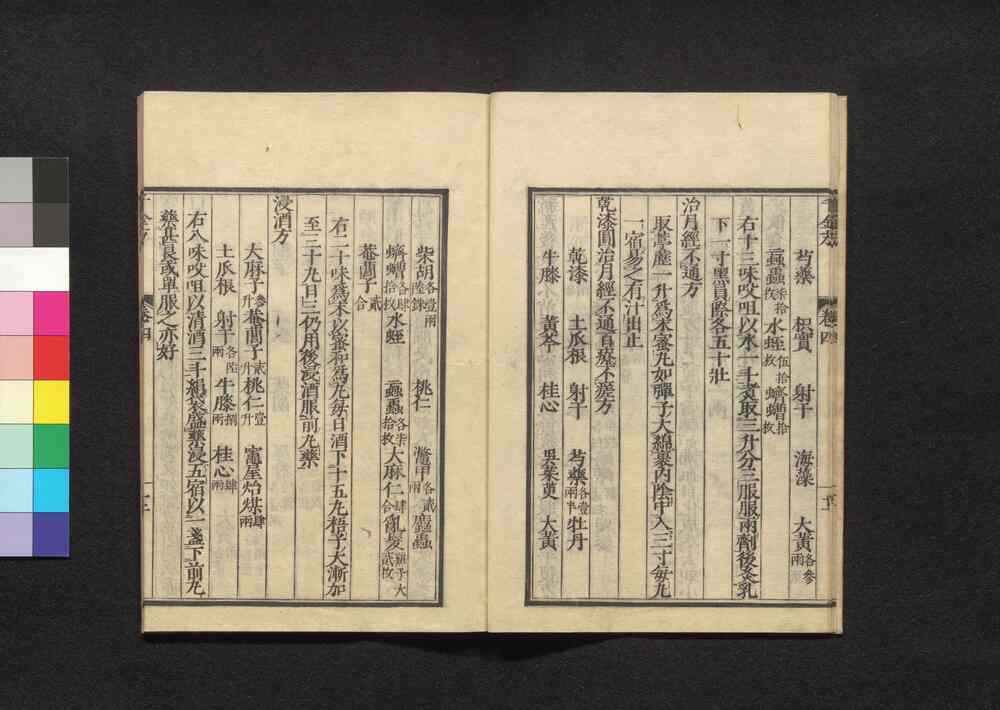 芍藥 枳實 射干 海藻 大黃各叁兩
蝱蟲柒拾枚水蛭伍拾枚蠐螬拾枚
右十三味㕮咀以水一斗煑取三升分三服服兩劑後灸乳
下一寸黑員際各五十壯
治月經不通方
取葶藶一升爲末蜜丸如彈子大綿裹内陰中入三寸每丸
一宿易之有汁出止
乾漆圓治月經不通百療不瘥方
乾漆 土瓜根 射干 芍藥各壹兩半牡丹
牛膝 黃芩 桂心 吳茱萸 大黃
柴胡各壹兩陸銖 桃仁 鼈甲各貳兩䗪蟲
蠐螬各肆拾枚水蛭 蝱蟲各柒拾枚大麻仁肆合亂髮雞子大貳枚
菴䕡子貳合
右二十味爲末以蜜和爲丸每日酒下十五丸梧子大漸加
至三十丸日三仍用後浸酒服前丸藥
浸酒方
大麻子叁升菴䕡子貳升桃仁壹升 竈屋炲煤肆兩
土瓜根 射干各陸兩牛膝捌兩 桂心肆兩
右八味㕮咀以清酒三斗絹袋盛藥浸五宿以一盞下前丸
藥甚良或單服之亦好
千金方
卷四